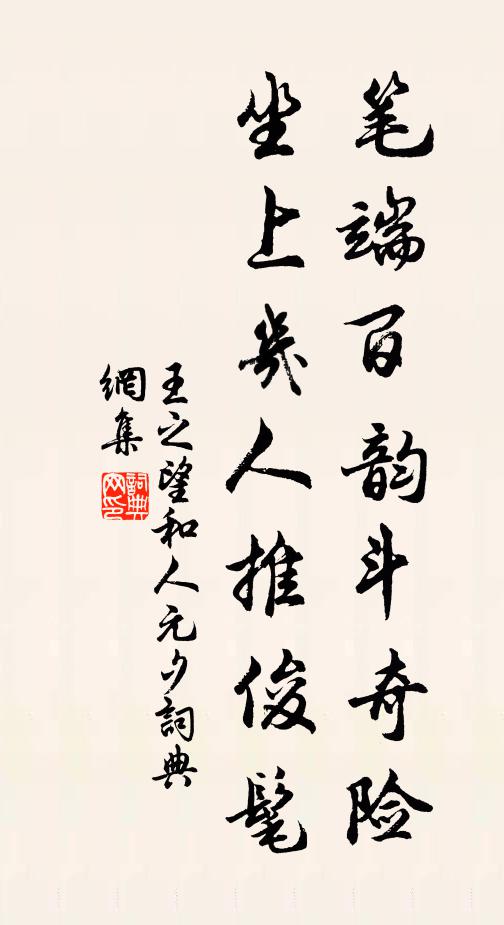 笔端百韵斗奇险
坐上幾人推俊髦
王之望和人元夕詞典
網集
詞典
网印